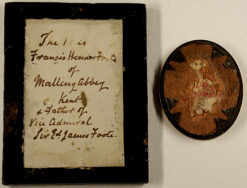 The
Francis Hender Foote
of
Malling Abbey
Kent
& Father of
Vice Admiral
Sir Ed. James Foote.